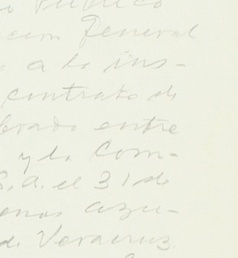 Publico
cion General
a la ins-
contrato de
brado entre
y la Com-
S. A. el 31 de
enas azu-
de Veracruz